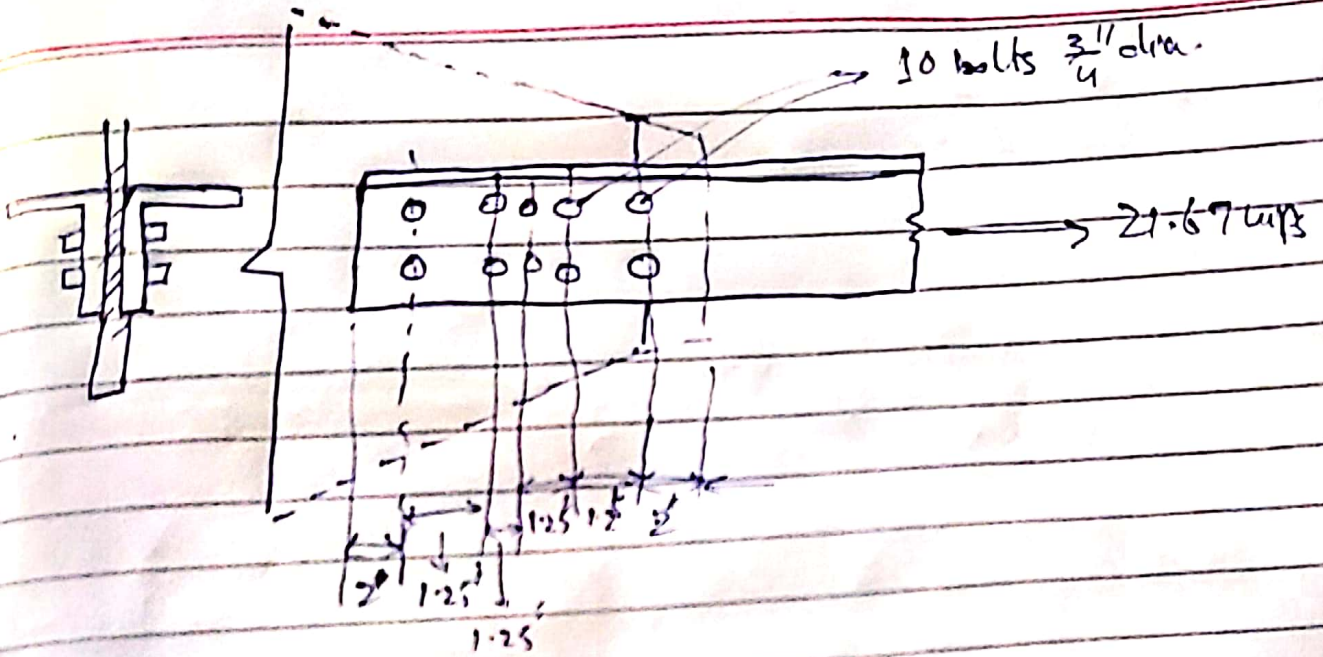 10 bolts 3/4" dia.
21.67 kips
1.25' 1.2' 2'
2" 1.25'
1.25'